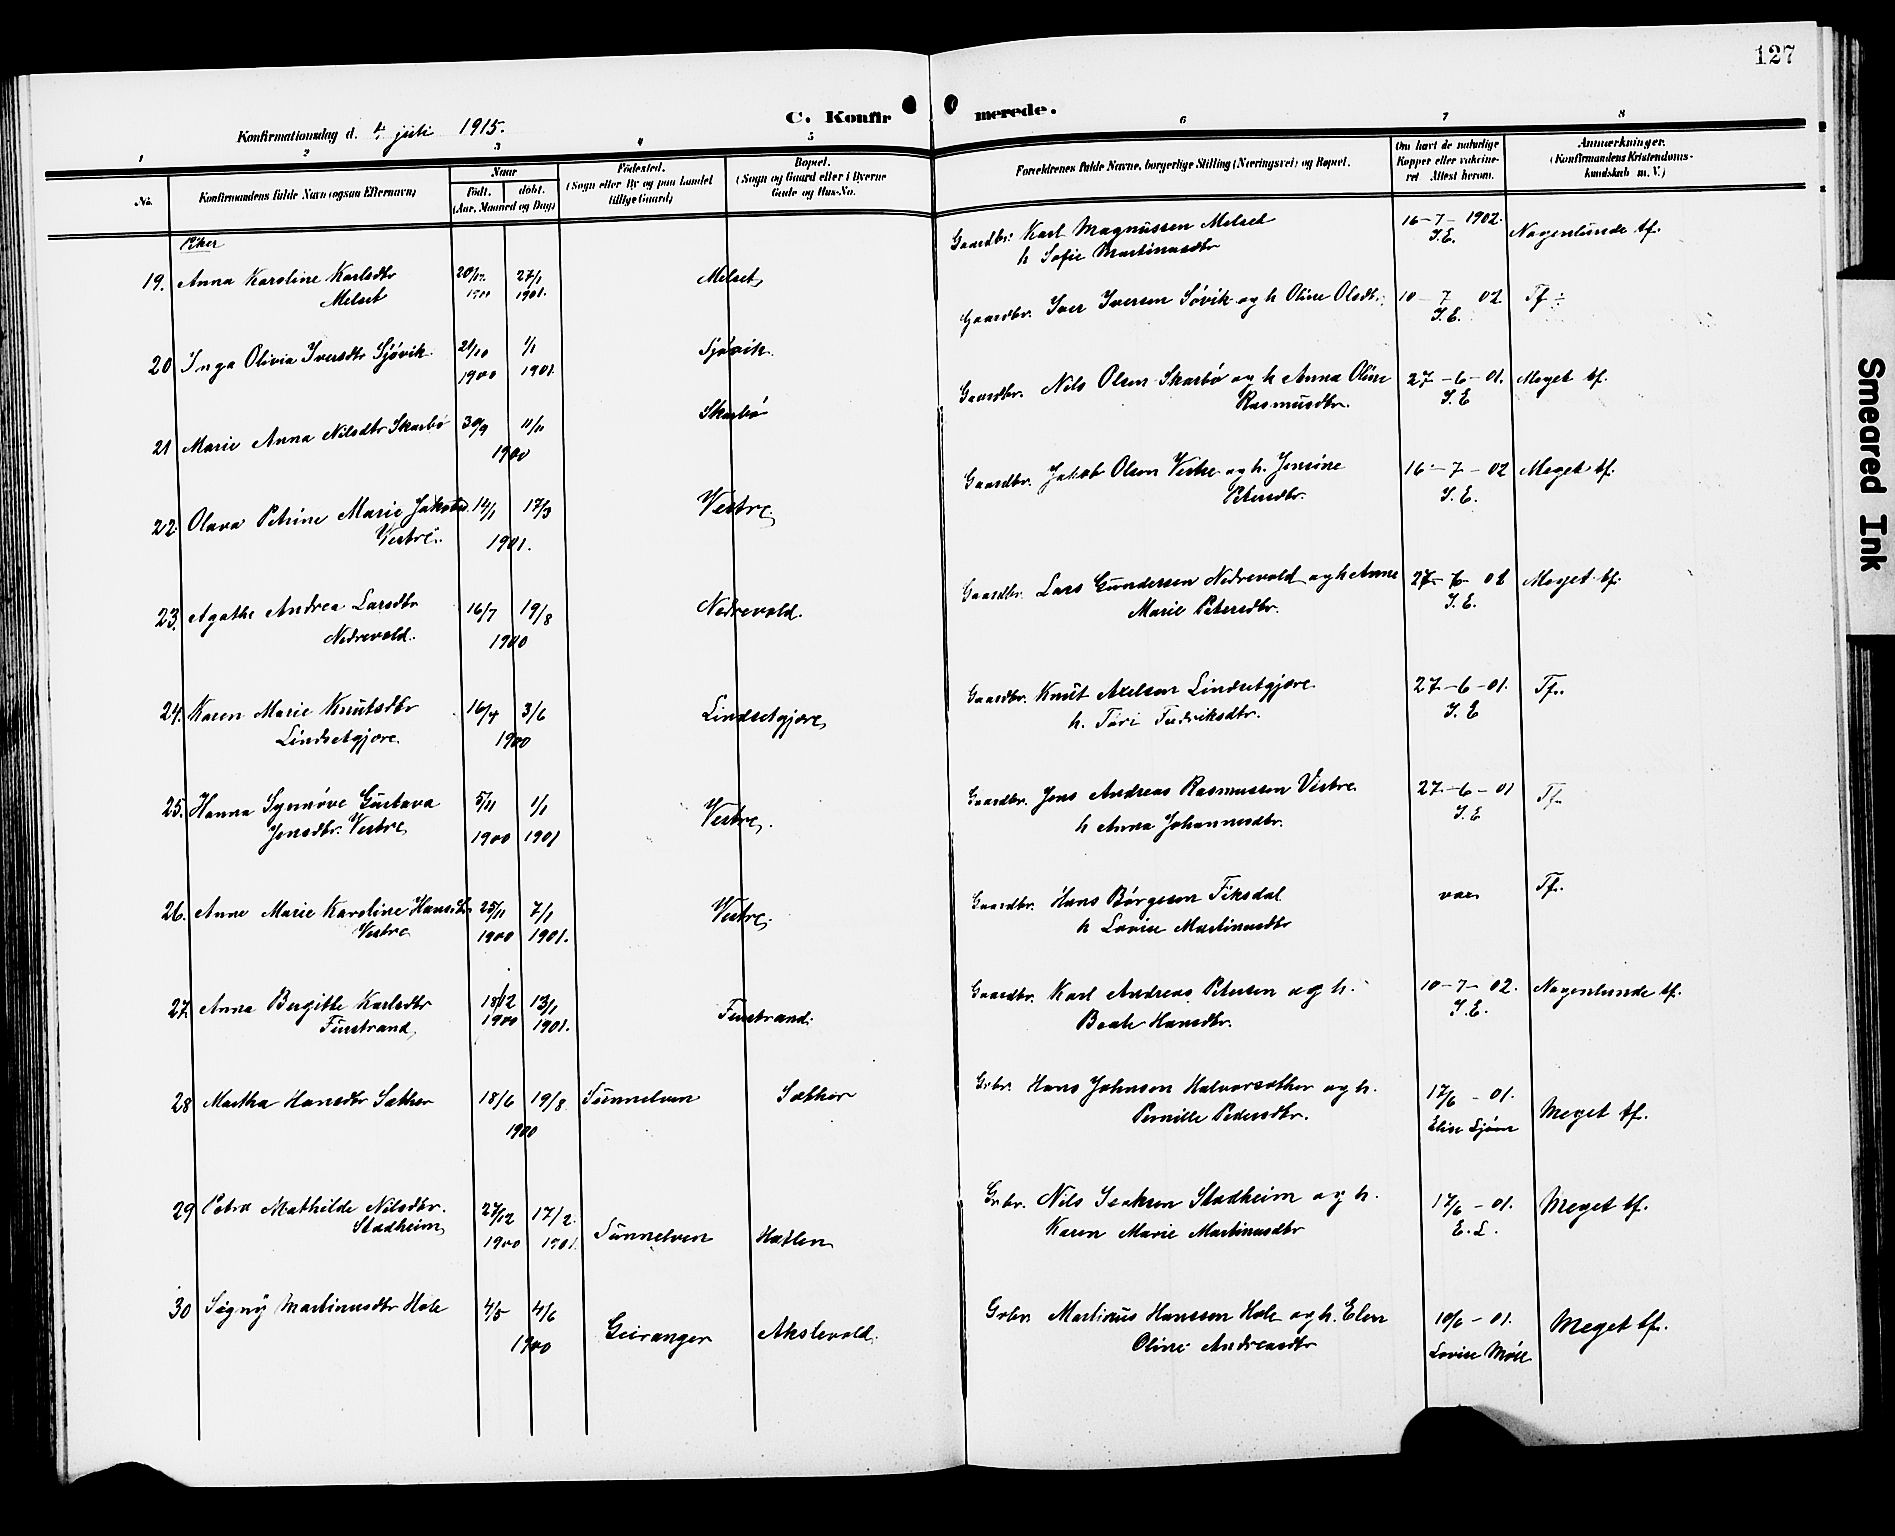 127
C. Konfirmerede.
Konfirmationsdag d. 4 juli 1915.
1 2 3 4 5 6 7 8
No.
Konfirmandens fulde Navn (ogsaa Efternavn)
Naar
Født. døbt.
(Aar, Maaned og Dag)
Fødested.
(Sogn eller By og paa Landet
tillige Gaard)
Bopæl.
(Sogn og Gaard eller i Byerne
Gade og Hus-No.
Forældrenes fulde Navne, borgerlige Stilling (Næringsvei) og Bopæl.
Om havt de naturlige
Kopper eller vakcine-
ret Attest herom.
Anmærkninger.
(Konfirmandens Kristendoms-
kundskab m. V.)
Piker
19. Anna Karoline Karlsdtr
Melset
20/12 1900 27/1 1901.
Melset
Gaardbr. Karl Magnussen Melset
h Sofie Martinusdtr
16-7-1902.
I.E.
Nogenlunde tf.
20 Inga Olivia Iversdtr Sjøvik
21/10 1900 1/1 1901.
Sjøvik
Gaardbr. Iver Iversen Søvik og h Oline Olsdtr.
10-7 02
I.E.
Tf ÷
21 Marie Anna Nilsdtr Skarbø
30/9 11/11
1900
Skarbø
Gaardbr. Nils Olsen Skarbø og h Anna Oline
Rasmusdtr.
27-6-01.
I.E
Meget tf.
22. Olava Petrine Marie Jakobsd.
Vestre.
14/1 17/3
1901.
Vestre
Gaardbr. Jakob Olsen Vestre og h. Jensine
Petersdtr.
16-7-02
I.E.
Meget tf.
23. Agathe Andrea Larsdtr
Nedrevold.
16/7 19/8
1900
Nedrevold.
Gaardbr. Lars Gundersen Nedrevold og h Anne
Marie Petersdtr.
I.E.
Meget tf.
24. Karen Marie Knutsdtr
Lindsetgjære
16/4 3/6
1900
Lindsetgjære
Gaardbr. Knut Axelsen Lindsetgjære
h. Turi Fredriksdtr.
27-6-01.
I.E
Tf.
25. Hanna Synnøve Gustava
Jensdtr. Vestre
5/11 1900 1/1 1901
Vestre.
Gaardbr. Jens Andreas Rasmussen Vestre
h Anna Johannesdtr.
27-6-01
I.E
Tf.
26. Anne Marie Karoline Hansdtr
Vestre
25/11 1900 7/1 1901.
Vestre.
Gaardbr. Hans Børgesen Fiksdal
h Lovise Martinusdtr
vac.
Tf.
27. Anna Bergitte Karlsdtr
Finstrand
18/12 1900 13/1 1901.
Finstrand.
Gaardbr. Karl Andreas Petersen og h.
Beate Hansdtr.
10-7-02.
I.E.
Nogenlunde tf.
28 Martha Hansdtr Sæther
18/6 19/8
1900
Sunnelven
Sæther
Grbr. Hans Johnsen Halvorsæther og h.
Pernille Pedersdtr.
17/6 - 01.
Meget tf.
29 Petra Mathilde Nilsdtr.
Stadheim
27/12 1900 17/2 1901.
Sunnelven
Hatlen
Grbr. Nils Isaksen Stadheim og h.
Karen Marie Martinusdtr
17/6 - 01.
E. L.
Meget tf.
30 Signy Martinusdtr Hole
4/5 4/6
1900
Geiranger
Akslevold.
Grbr Martinus Hanssen Hole og h. Elen
Oline Andreasdtr
10/6 - 01.
Lovise Møll
Meget tf.
Smeared Ink